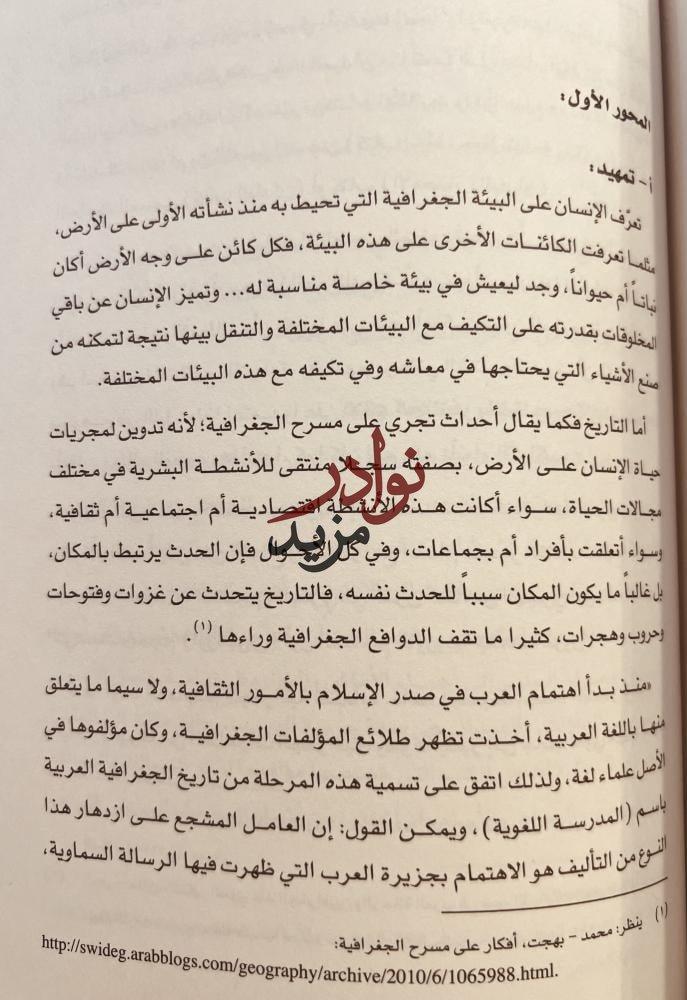 المحور الأول:
أ- تمهيد:
تعرَّف الإنسان على البيئة الجغرافية التي تحيط به منذ نشأته الأولى على الأرض،
مثلما تعرفت الكائنات الأخرى على هذه البيئة، فكل كائن على وجه الأرض أكان
نباتاً أم حيواناً، وجد ليعيش في بيئة خاصة مناسبة له... وتميز الإنسان عن باقي
المخلوقات بقدرته على التكيف مع البيئات المختلفة والتنقل بينها نتيجة لتمكنه من
صنع الأشياء التي يحتاجها في معاشه وفي تكيفه مع هذه البيئات المختلفة.
أما التاريخ فكما يقال أحداث تجري على مسرح الجغرافية؛ لأنه تدوين لمجريات
حياة الإنسان على الأرض، بصفته سجلا منتقى للأنشطة البشرية في مختلف
مجالات الحياة، سواء أكانت هذه الأنشطة اقتصادية أم اجتماعية أم ثقافية،
وسواء أتعلقت بأفراد أم بجماعات، وفي كل الأحوال فإن الحدث يرتبط بالمكان،
بل غالباً ما يكون المكان سبباً للحدث نفسه، فالتاريخ يتحدث عن غزوات وفتوحات
وحروب وهجرات، كثيرا ما تقف الدوافع الجغرافية وراءها (١).
«منذ بدأ اهتمام العرب في صدر الإسلام بالأمور الثقافية، ولا سيما ما يتعلق
منها باللغة العربية، أخذت تظهر طلائع المؤلفات الجغرافية، وكان مؤلفوها في
الأصل علماء لغة، ولذلك اتفق على تسمية هذه المرحلة من تاريخ الجغرافية العربية
باسم (المدرسة اللغوية)، ويمكن القول: إن العامل المشجع على ازدهار هذا
النوع من التأليف هو الاهتمام بجزيرة العرب التي ظهرت فيها الرسالة السماوية،
(١) ينظر: محمد - بهجت، أفكار على مسرح الجغرافية:
http://swideg.arabblogs.com/geography/archive/2010/6/1065988.html.
نوادر
مزيد